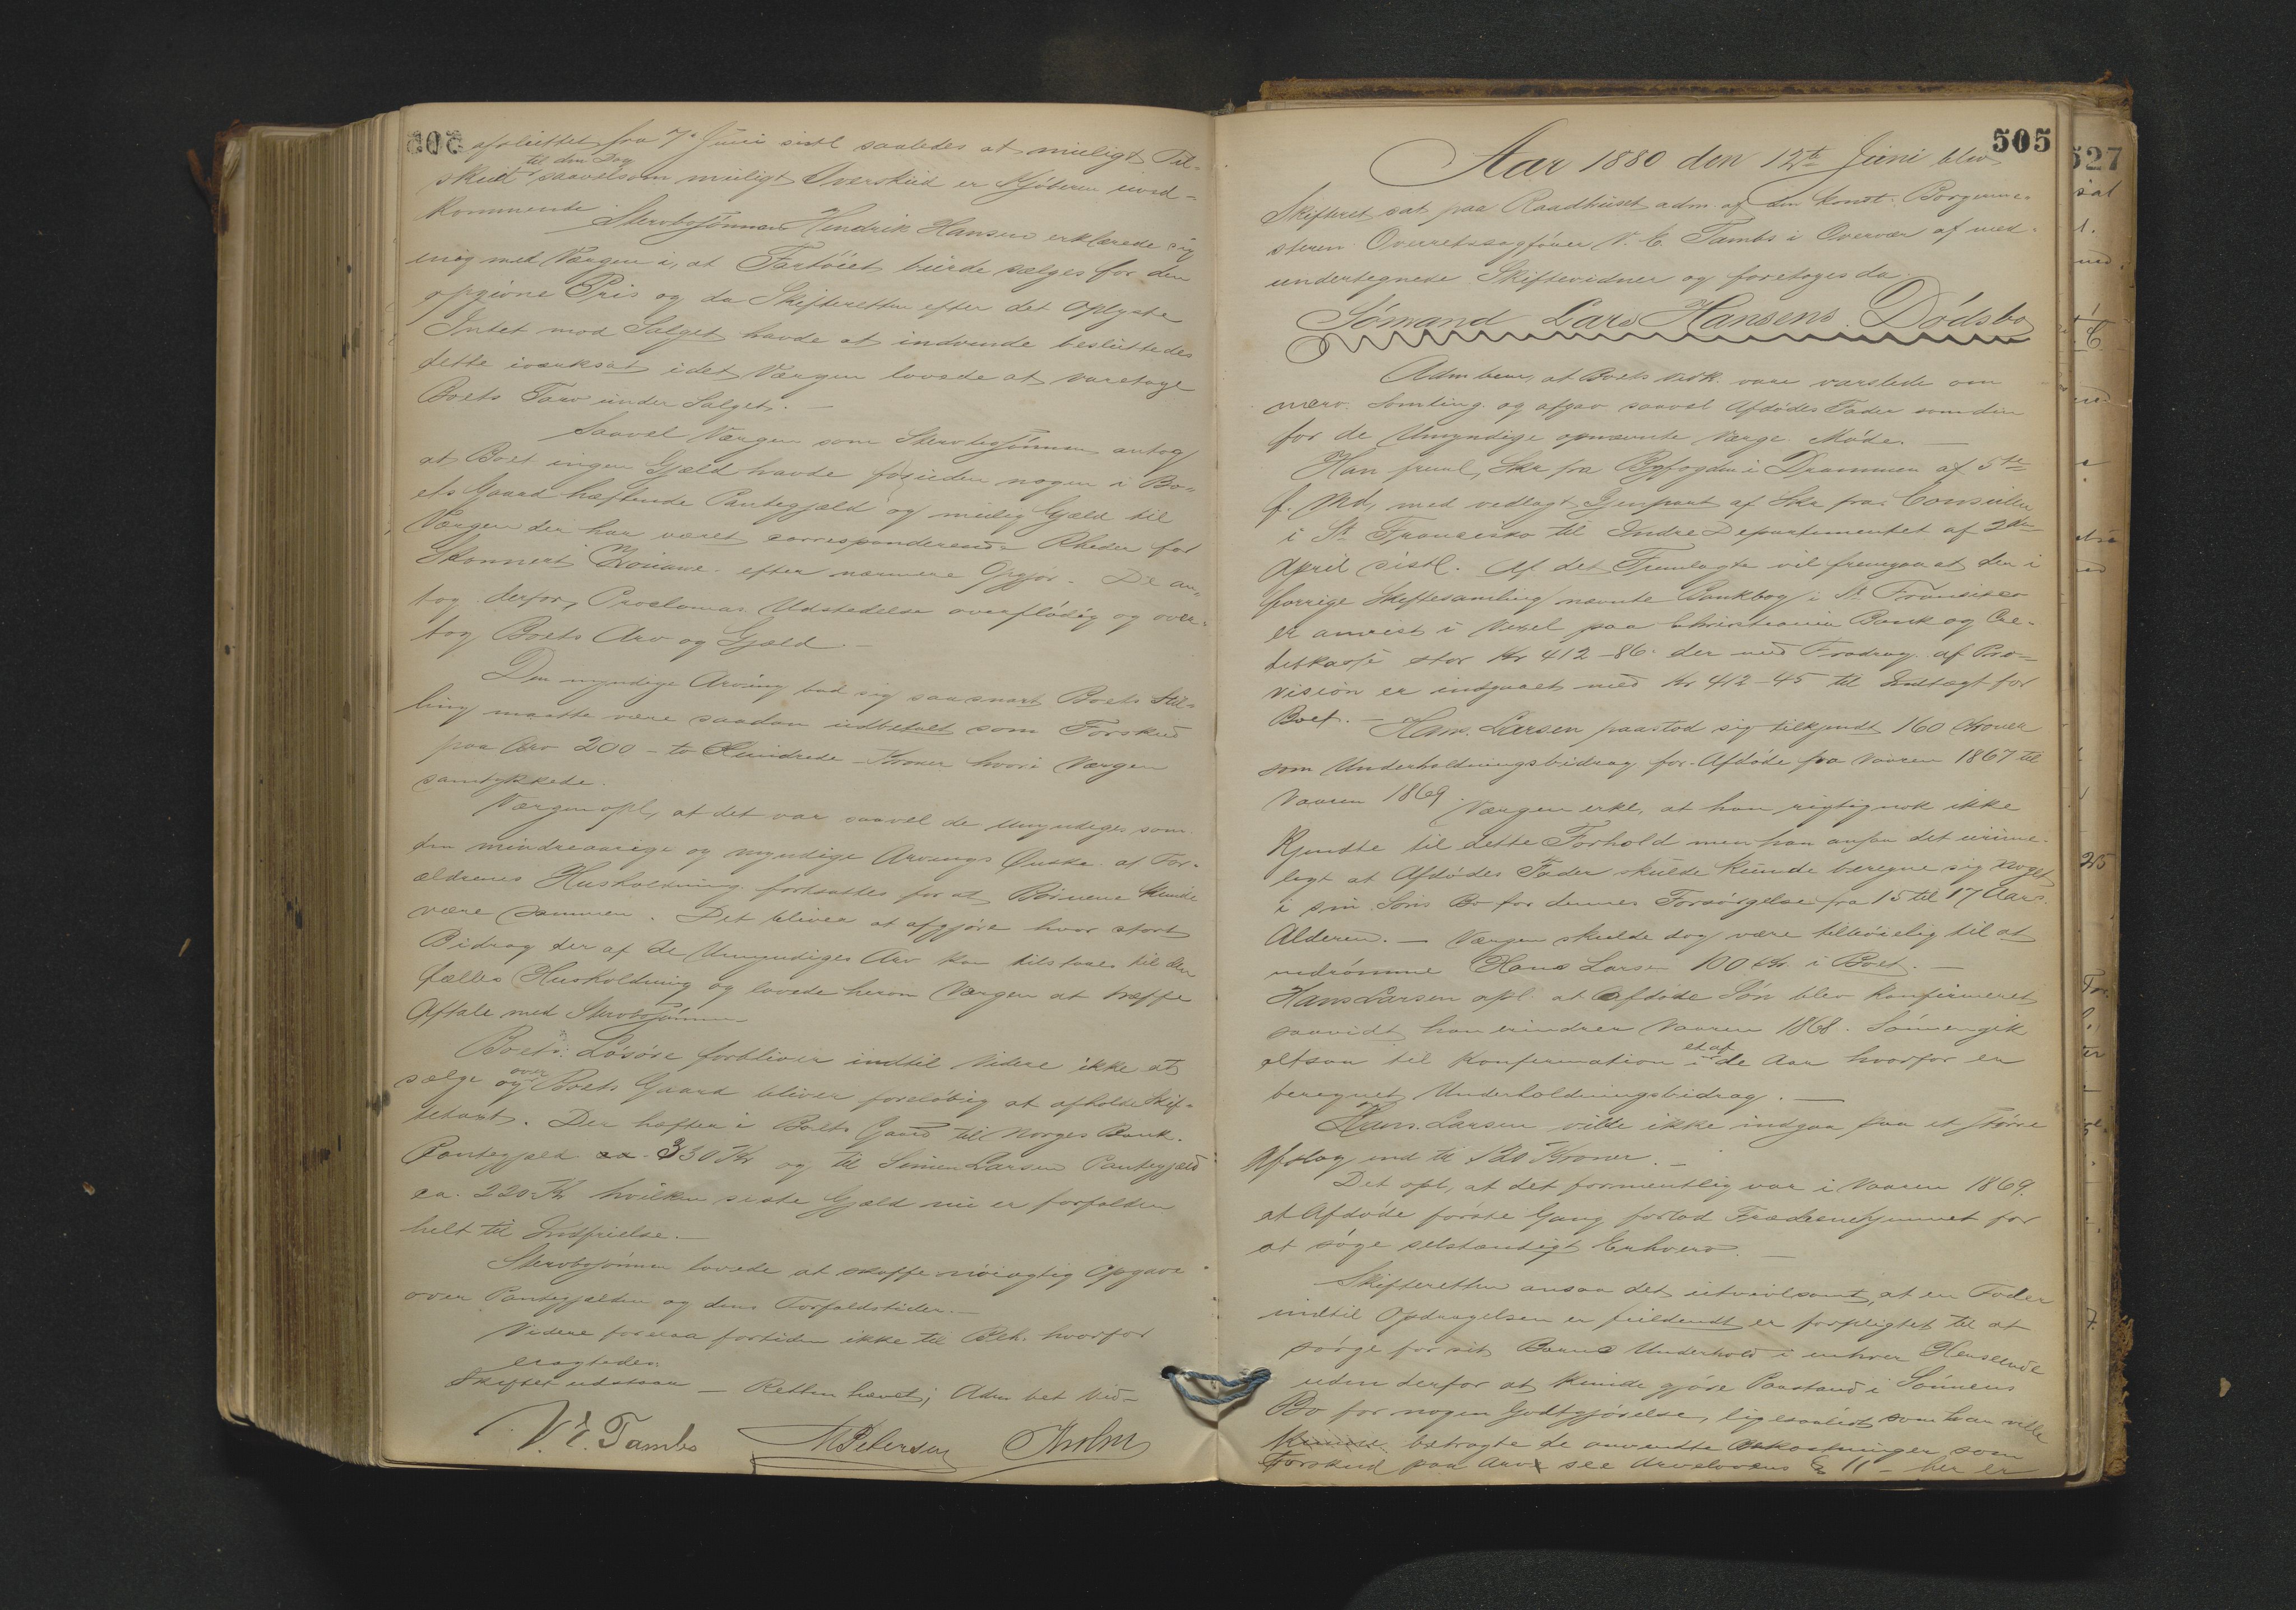 505
afsluttet fra 7 Juni sistl saaledes at muligt Til-
skud til den Dag saavelsom muligt Overskud er Kjøberen uved-
kommende.
Stervbosønnen Hendrik Hansen erklærede sig
enig med Værgen i, at Fartøiet burde sælges for den
opgivne Pris og da Skifteretten efter det Oplyste
Intet mod Salget havde at indvende besluttedes
dette iværksat idet Værgen lovede at varetage
Boets Tarv under Salget. —
Saavel Værgen som Stervbosønnen antog
at Boet ingen Gjæld havde foruden nogen i Bo-
ets Gaard hæftende Pantegjæld og mulig Gjæld til
Værgen der har været corresponderende Rheder for
Skonnert efter nærmere Opgjør. De an-
tog derfor, Proclamas Udstedelse overflødig og over-
tog Boets Arv og Gjæld. —
Den myndige Arving bad sig saasnart Boets Stil-
ling maatte være saadan udbetalt som Forskud
paa Arv 200 – to Hundrede – Kroner hvori Værgen
samtykkede.
Værgen opl, at det var saavel de Umyndiges som
den mindreaarige og myndige Arvings Ønske at For-
ældrenes Husholdning fortsattes for at Børnene kunde
være sammen. Det bliver at afgjøre hvor stort
Bidrag der af de Umyndiges Arv kan tilstaaes til den
fælles Husholdning og lovede herom Værgen at træffe
Aftale med Stervbosønnen
Boets Løsøre forbliver indtil Videre ikke at
sælge og over Boets Gaard bliver foreløbig at afholde Skif-
tetaxt. Der hæfter i Boets Gaard til Norges Bank
Pantegjæld ca 330 Kr og til Simen Larsen Pantegjæld
ca. 220 Kr hvilken sidste Gjæld nu er forfalden
helt til Indfrielse. —
Stervbosønnen lovede at skaffe nøiagtig Opgave
over Pantegjælden og dens Forfaldstider. —
Videre forelaa fortiden ikke til Beh. hvorfor
eragtedes:
Skiftet udstaar — Retten hævet; Adm bet Vid-
V. E. Tambs M Petersen Holm
505
Aar 1880 den 12te Juni blev
Skifteret sat paa Raadhuset adm. af den konst. Borgerme-
steren Overretssagfører V. E. Tambs i Overvær af ned-
undertegnede Skiftevidner og foretoges da:
Sømand Lars Hansens Dødsbo
Adm bem, at Boets vedk. vare varslede om
nærv. Samling og afgav saavel Afdødes Fader som den
for de Umyndige opnævnte Værge Møde. —
Han freml, Skr fra Byfogden i Drammen af 5te
f. Md, med vedlagt Gjenpart af Skr fra Consulen
i St Francisko til Indre Departementet af 2den
April sistl. Af det Fremlagte vil fremgaa at den i
forrige Skiftesamling nævnte Bankbog i St Francisco
er anvist i Vexel paa Christiania Bank og Cre-
ditkasse stor Kr 412–86 der med Fradrag af Pro-
vision er indgaaet med Kr 412–45 til Indtægt for
Boet. — Hans Larsen paastod sig tilkjendt 160 Kroner
som Underholdningsbidrag for Afdøde fra Vaaren 1867 til
Vaaren 1869.
Værgen erkl, at han rigtignok ikke
kjendte til dette Forhold men han ansaa det urime-
ligt at Afdødes Fader skulde kunde beregne sig noget
i sin Søns Bo for dennes Forsørgelse fra 15 til 17 Aars
Alderen. — Værgen skulde dog være tilbøielig til at
indrømme Hans Larsen 100 Kr. i Boet. —
Hans Larsen opl at Afdøde Søn blev konfirmeret
saavidt han erindrer Vaaren 1868. Sønnen gik
altsaa til Konfirmation i et af de Aar hvorfor er
beregnet Underholdningsbidrag. —
Hans Larsen vilde ikke indgaa paa et større
Afslag end til 120 Kroner. —
Det opl, at det formentlig var i Vaaren 1869.
at Afdøde første Gang forlod Fædrenehjemmet for
at søge selstændigt Erhverv. —
Skifteretten ansaa det utvivlsomt, at en Fader
indtil Opdragelsen er fuldendt er forpligtet til at
sørge for sit Barns Underhold i enhver Henseende
uden derfor at kunde gjøre Paastand i Sønnens
Bo for nogen Godtgjørelse, ligesaalidt som han vilde
kunne betragte de anvendte Omkostninger som
Forskud paa Arv see Arvelovens § 11 – her er
527